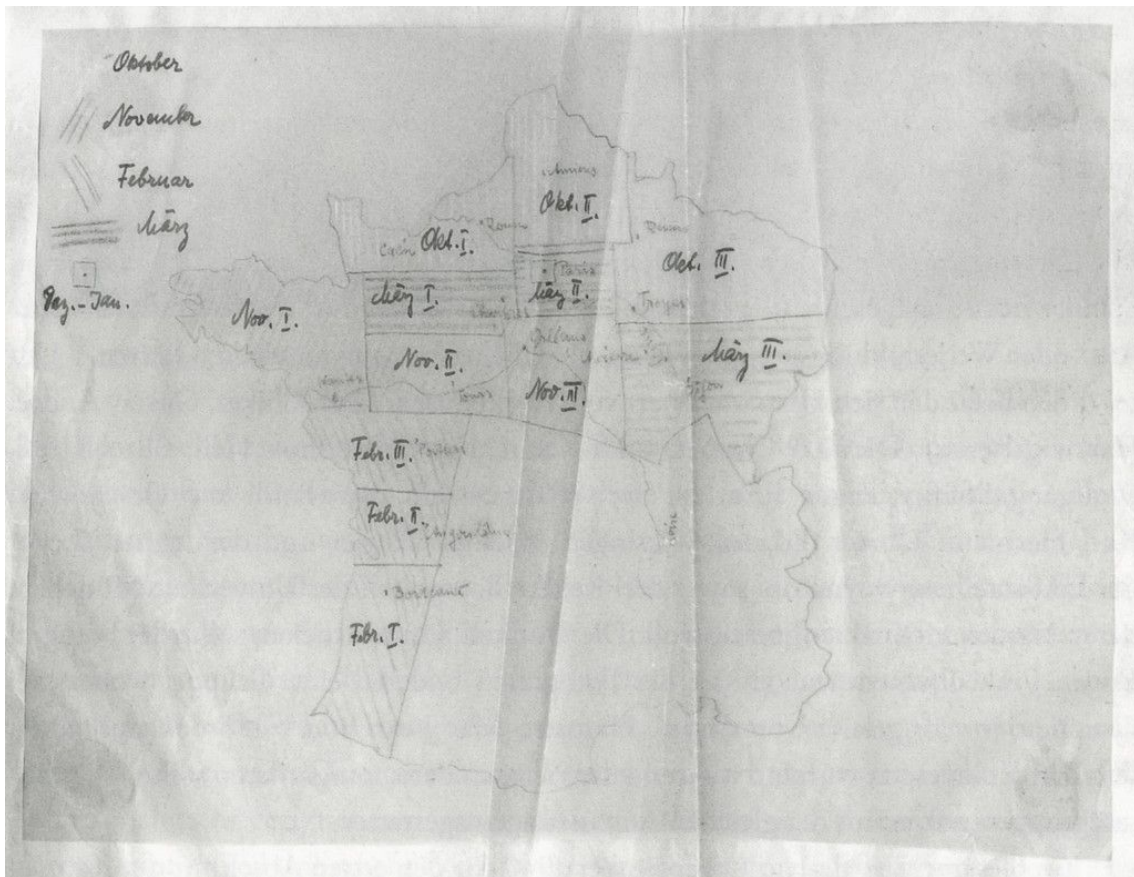 Oktober
November
Februar
März
Dez. - Jan.
Amiens
Okt. II.
Rouen
Caen
Okt. I.
Reims
Okt. III.
Paris
März I.
März II.
Troyes
Nov. I.
Orléans
März III.
Nov. II.
Nantes
Tours
Nov. III.
Dijon
Febr. III.
Poitiers
Febr. II.
Angoulême
Loire
Bordeaux
Febr. I.